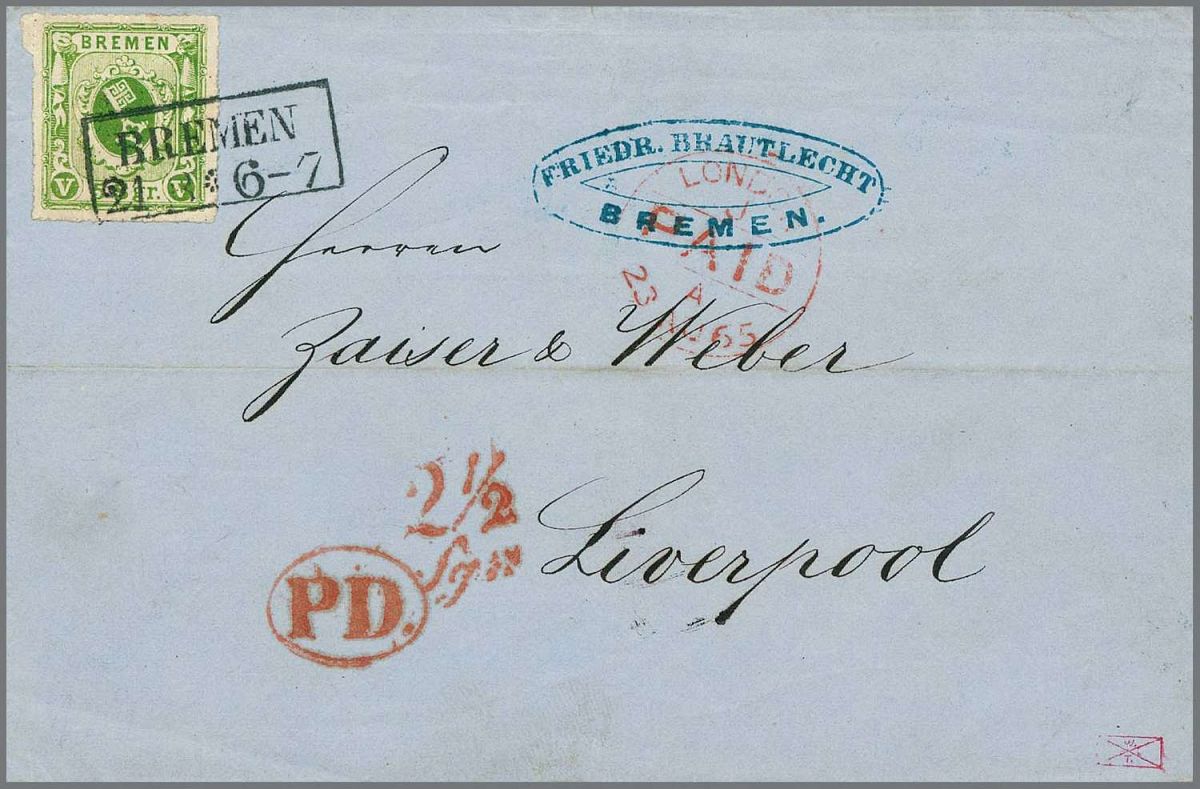 BREMEN
V V
BREMEN
21 * 6-7
FRIEDR. BRAUTLECHT
BREMEN.
PAID
A
23 AU 65
Herren
Zaiser & Weber
2 1/2
Sgr
PD.
Liverpool
W.
T.